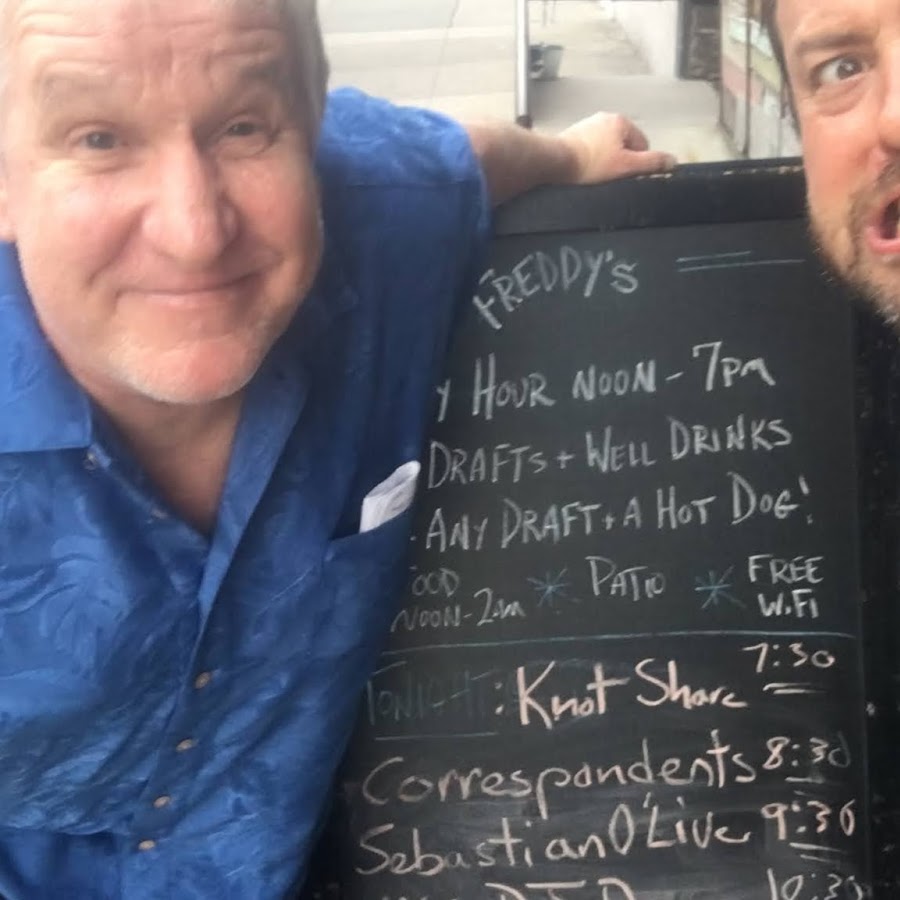 FREDDY'S
Y HOUR NOON - 7PM
DRAFTS + WELL DRINKS
ANY DRAFT + A HOT DOG!
OOD NOON-2AM * PATIO * FREE Wi.Fi
TONIGHT: Knot Share 7:30
Correspondents 8:30
Sebastian O'Live 9:30
10:30